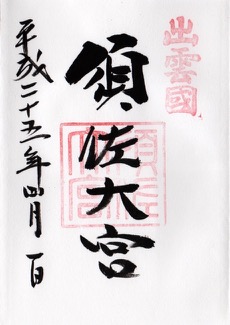 出雲國
須佐大宮
平成二十五年四月一日